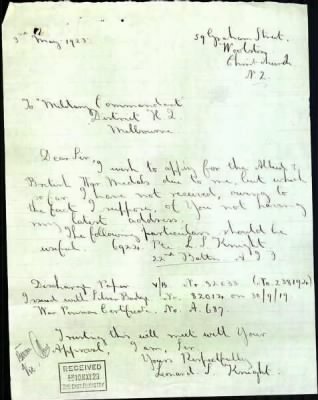 3rd May 1923.
59 Graham Street.
Woolston
Christchurch
N.Z.
To "Military Commandant"
District H Q
Melbourne
Dear Sir,
I wish to apply for the Allied &
British War Medals due to me, but which
so far I have not received, owing to
the fact I suppose, of You not having
my latest address.
The following particulars should be
useful 6924 Pte L. S. Knight
22nd Battn A I F
Discharge Paper No.
Issued with Silver Badge No. 82012 on 30/9/19
War Pension Certificate No. A. 687.
Trusting this will meet well Your
Approval, I am, Sir.
Yours Respectfully
Leonard. S. Knight.
RECEIVED